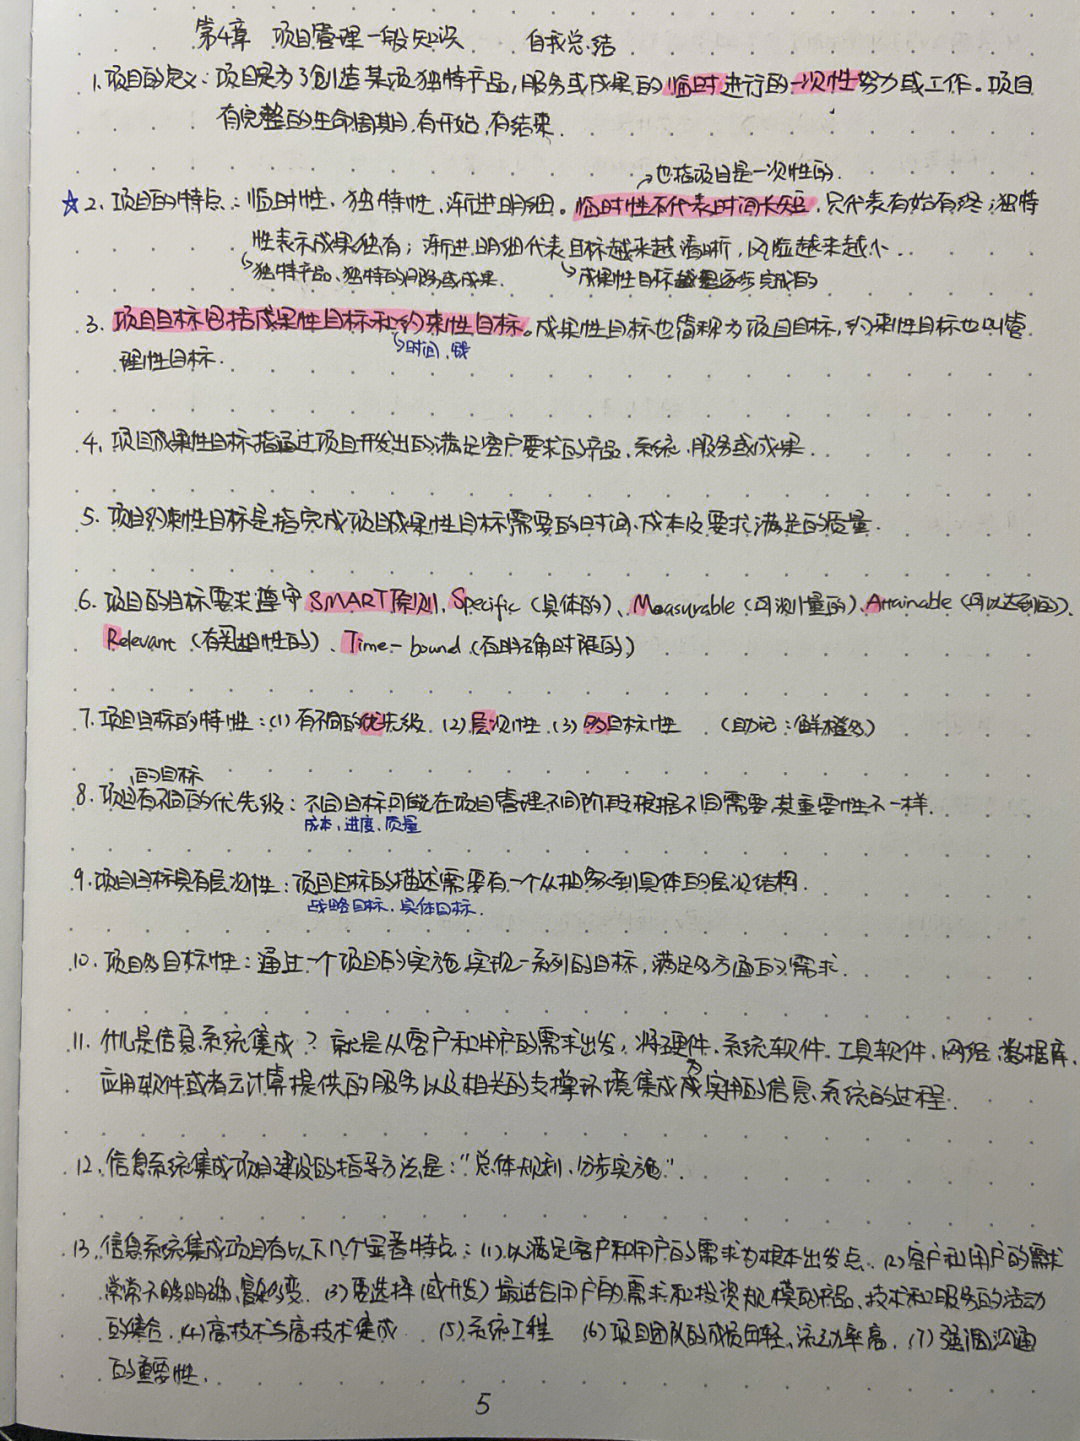 第4章 项目管理一般知识 自我总结
1.项目的定义：项目是为了创造某项独特产品,服务或成果的临时进行的一次性努力或工作。项目
有完整的生命周期,有开始,有结束.
也指项目是一次性的.
☆2.项目的特点：临时性、独特性、渐进明细。临时性不代表时间长短,只代表有始有终；独特
性表示成果独有；渐进明细代表目标越来越清晰,风险越来越小.
独特产品、独特的服务或成果. 成果性目标是逐步完成的
3.项目目标包括成果性目标和约束性目标。成果性目标也简称为项目目标,约束性目标也叫管
时间、钱
理性目标.
4.项目成果性目标指通过项目开发出的满足客户要求的产品、系统、服务或成果.
5.项目约束性目标是指完成项目成果性目标需要的时间、成本及要求满足的质量.
6.项目的目标要求遵守SMART原则、Specific(具体的)、Measurable(可测量的)、Attainable(可以达到的)、
Relevant(有关相性的)、Time-bound(有明确时限的)
7.项目目标的特性：(1)有不同的优先级.(2)层次性.(3)多目标性 (助记：鲜橙多)
的目标
8.项目有不同的优先级：不同目标可能在项目管理不同阶段根据不同需要,其重要性不一样.
成本、进度、质量
9.项目目标具有层次性：项目目标的描述需要有一个从抽象到具体的层次结构.
战略目标、具体目标.
10.项目多目标性：通过一个项目的实施,实现一系列的目标,满足多方面的需求.
11.什么是信息系统集成？就是从客户和用户的需求出发,将硬件、系统软件、工具软件、网络、数据库、
应用软件或者云计算提供的服务以及相关的支撑环境集成为实用的信息系统的过程.
12.信息系统集成项目建设的指导方法是："总体规划、分步实施".
13.信息系统集成项目有以下几个显著特点：(1)以满足客户和用户的需求为根本出发点.(2)客户和用户的需求
常常不够明确、复杂多变.(3)要选择(或开发)最适合用户的需求和投资规模的产品、技术和服务的活动
的集合.(4)高技术与高技术集成 (5)系统工程 (6)项目团队的成员年轻、流动率高.(7)强调沟通
的重要性.
5